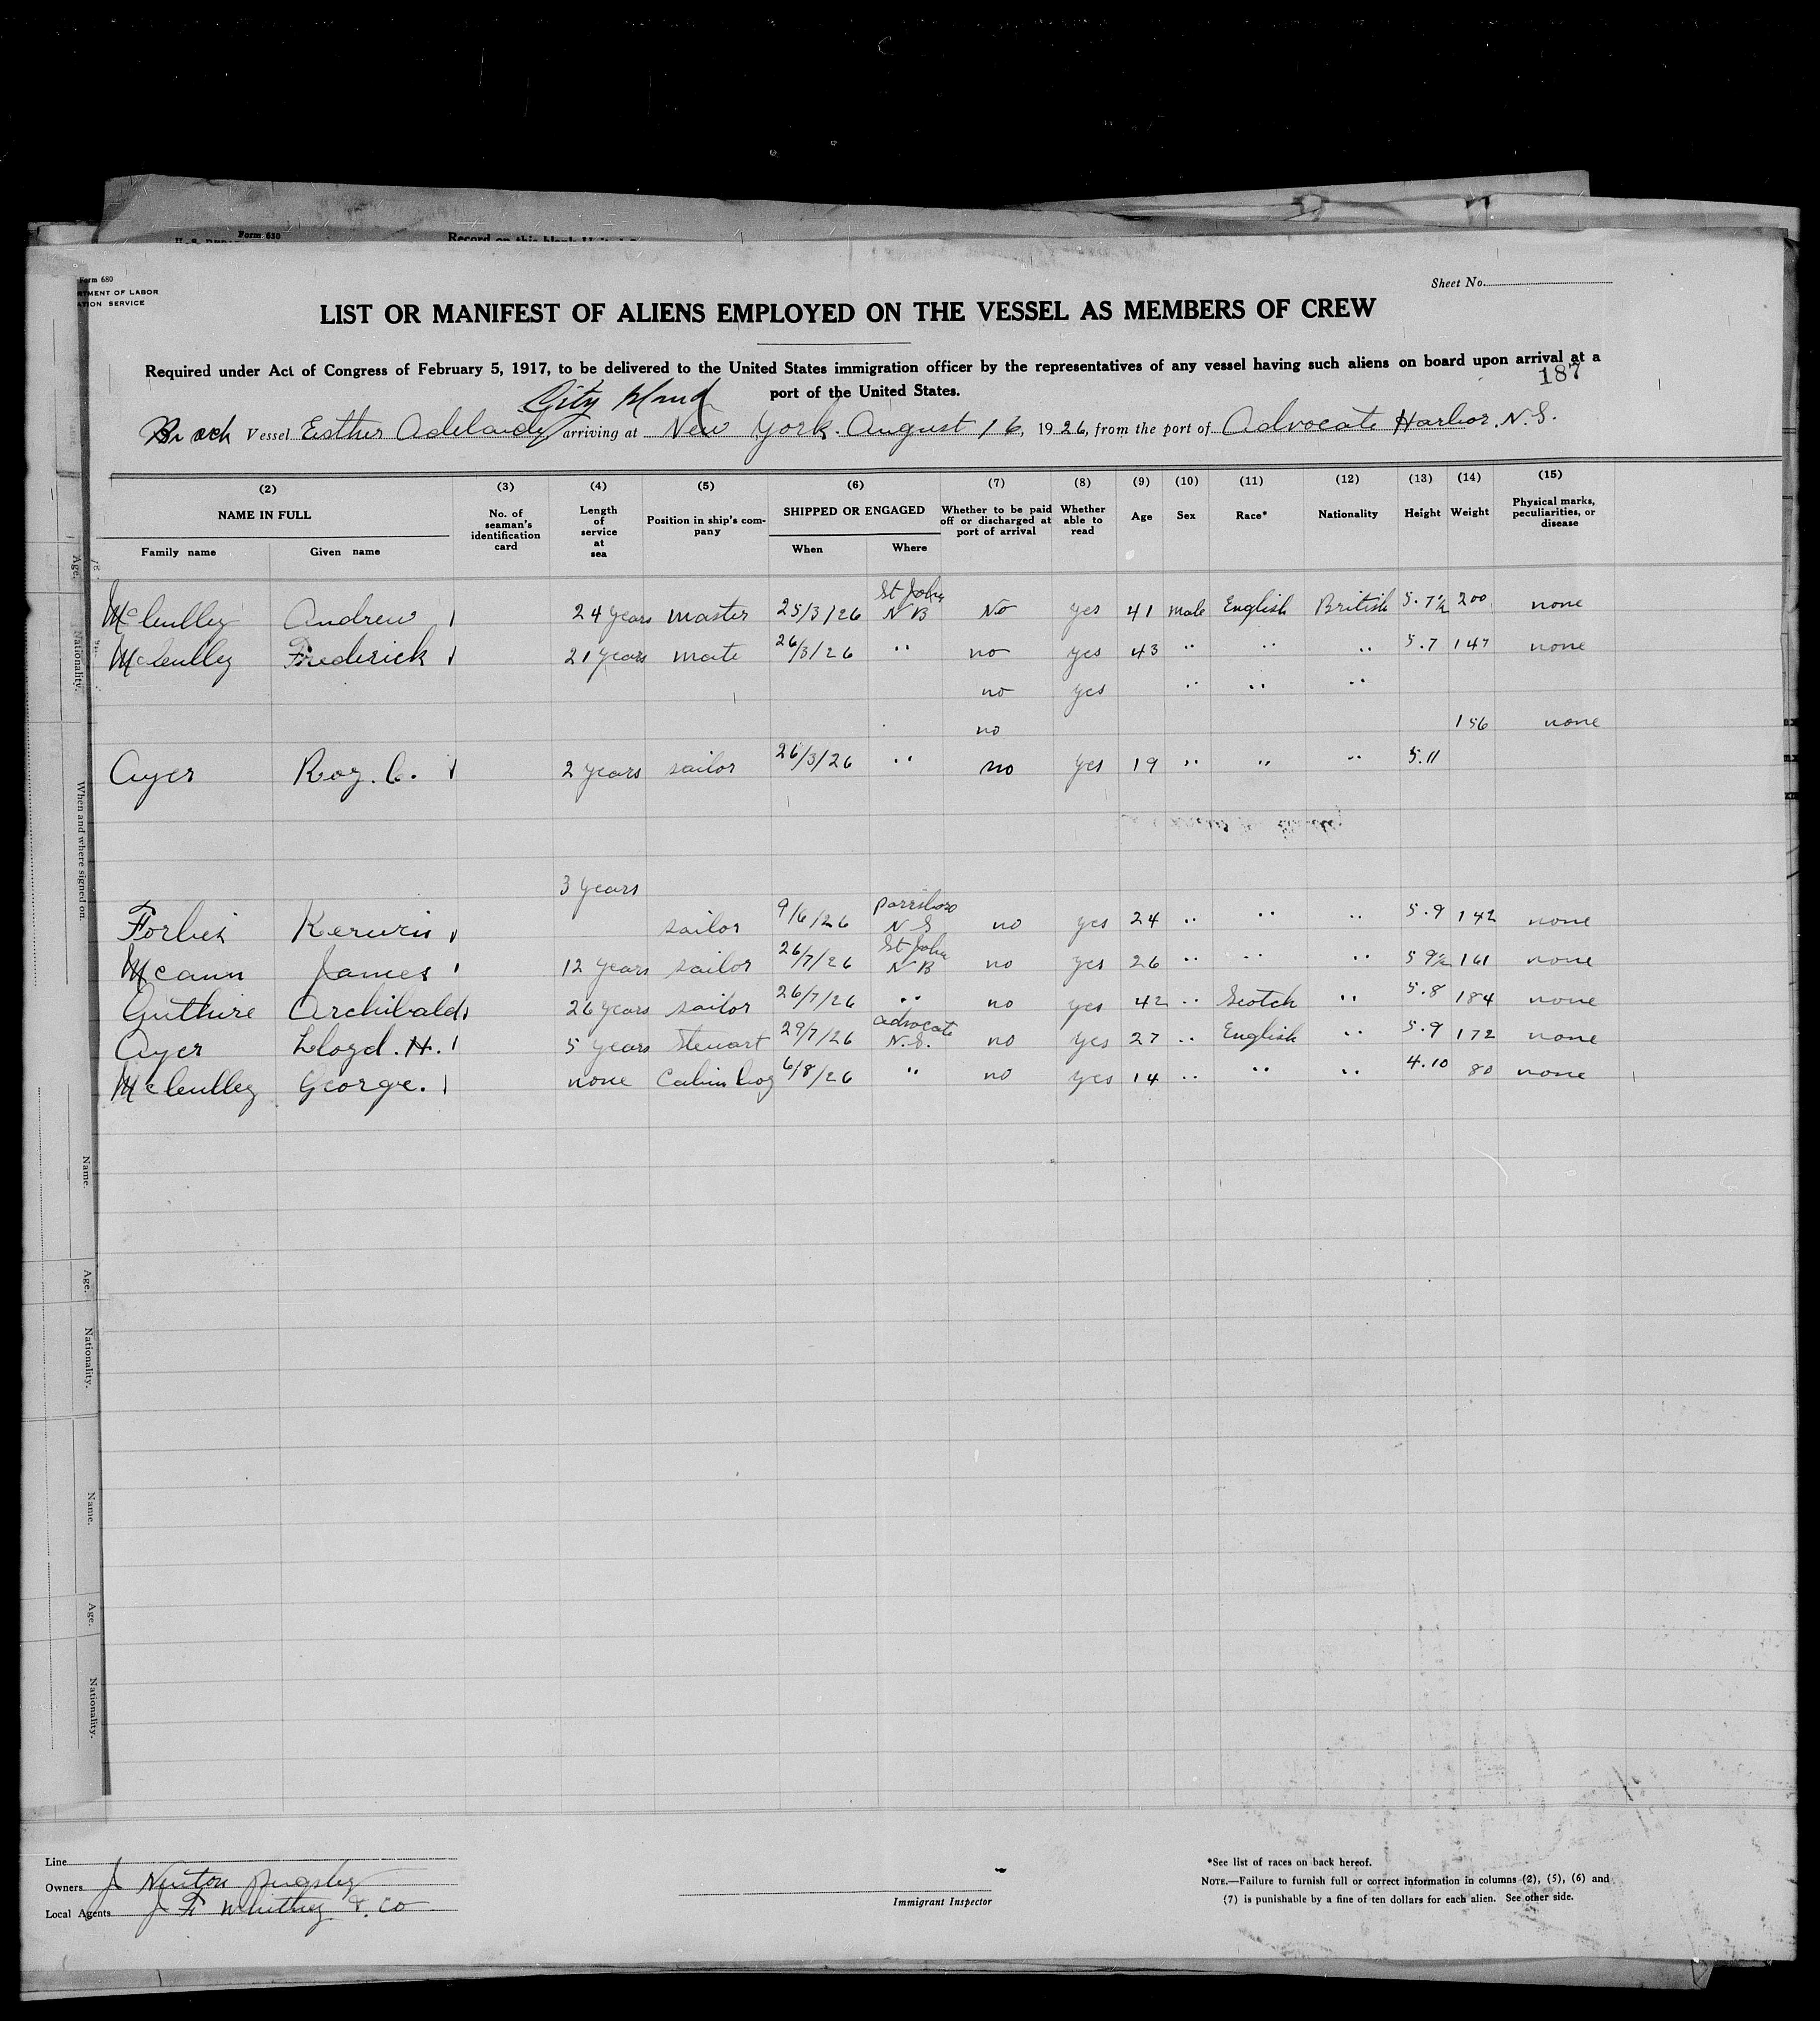 Form 630
Form 680
RTMENT OF LABOR
ATION SERVICE
Sheet No.
LIST OR MANIFEST OF ALIENS EMPLOYED ON THE VESSEL AS MEMBERS OF CREW
Required under Act of Congress of February 5, 1917, to be delivered to the United States immigration officer by the representatives of any vessel having such aliens on board upon arrival at a
port of the United States.
187
City Island
Br sch Vessel Esther Adelaide arriving at New York. August 16, 1926, from the port of Advocate Harbor. N.S.
(2) (3) (4) (5) (6) (7) (8) (9) (10) (11) (12) (13) (14) (15)
NAME IN FULL
Family name Given name
No. of seaman's identification card
Length of service at sea
Position in ship's company
SHIPPED OR ENGAGED
When Where
Whether to be paid off or discharged at port of arrival
Whether able to read
Age
Sex
Race*
Nationality
Height
Weight
Physical marks, peculiarities, or disease
McCulley Andrew 24 years master 25/3/26 St John N B No yes 41 male English British 5.7½ 200 none
McCulley Frederick 21 years mate 26/3/26 " no yes 43 " " " 5.7 147 none
no yes " " "
no 156 none
Ayer Roy. C. 2 years sailor 26/3/26 " no yes 19 " " " 5.11
3 years
Forbes Kerwin sailor 9/6/26 Parrsboro N S no yes 24 " " " 5.9 142 none
Mcann James 12 years sailor 26/7/26 St John N B no yes 26 " " " 5 9½ 161 none
Guthire Archibald 26 years sailor 26/7/26 " no yes 42 " Scotch " 5.8 184 none
Ayer Lloyd. H. 5 years Steuart 29/7/26 advocate N.S. no yes 27 " English " 5.9 172 none
McCulley George. none Cabin boy 6/8/26 " no yes 14 " " " 4.10 80 none
Age.
Nationality.
When and where signed on.
Name.
Age.
Nationality.
Name.
Age.
Nationality.
Line
Owners J Newton Pugsley
Local Agents J F Whitney & Co
Immigrant Inspector
*See list of races on back hereof.
NOTE.—Failure to furnish full or correct information in columns (2), (5), (6) and
(7) is punishable by a fine of ten dollars for each alien. See other side.